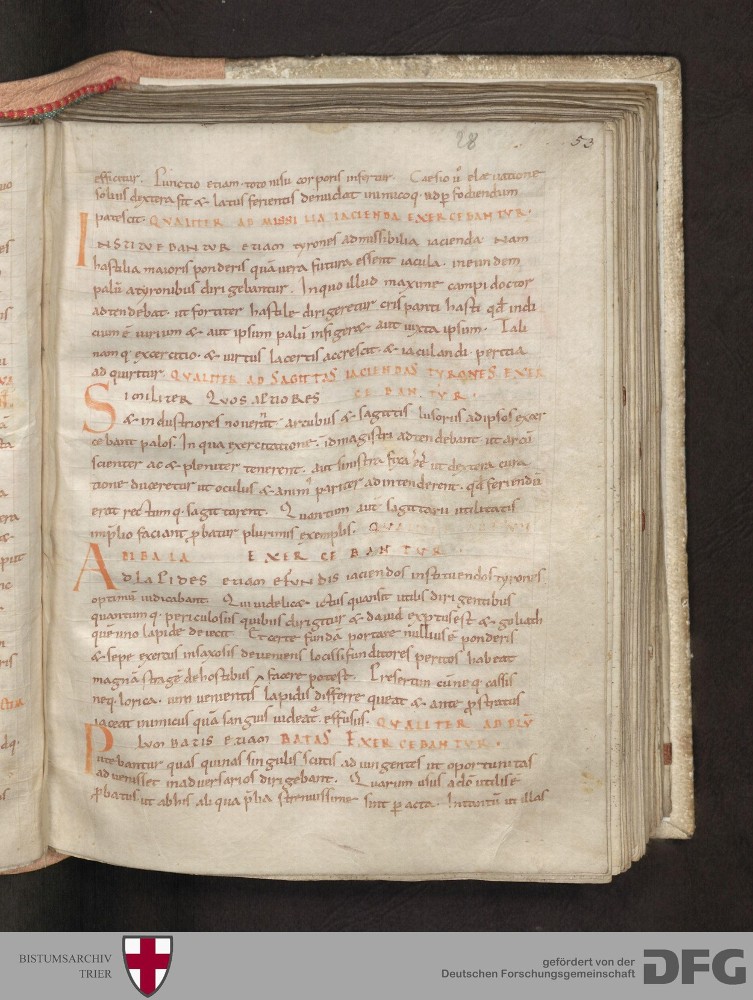 28
53
efficitur. Punctio etiam toto nisu corporis infertur. Caesio ů elevatione
solius dexterae fit & latus ferientis denudat inimicoq. adp fodiendum
patescit. QVALITER AD MISSILIA IACIENDA EXERCEBANTVR.
INSTITVEBANTVR etiam tyrones ad missibilia iacienda. Nam
hastilia maioris ponderis quā vera futura essent iacula. in eundem
palū a tyronibus dirigebantur. In quo illud maxime campi doctor
adtendebat. ut fortiter hastile dirigeretur
cium ē virium & aut ipsum palū infigere aut iuxta ipsum. Tali
namq; exercitio. & virtus lacertis accrescit. & iaculandi peritia
adquiritur. QVALITER AD SAGITTAS IACIENDAS TYRONES EXER
SIMILITER Quos aptiores CEBANTVR.
& industriores noverāt arcubus & sagittis lusoriis ad ipsos exer
cebant palos. In qua exercitatione. id magistri adtendebant. ut arcū
scienter ac & pleniter tenerent. aut sinistra fixa eēt ut dextera cura
tione duceretur ut oculus & anim' pariter ad intenderent. qđ feriendū
erat rectumq. sagittarent. Quantum autē sagittarii utilitatis
imp̄lio faciant probatur plurimis exemplis.
EXERCEBANTVR.
AD LAPIDES etiam & fundis iaciendos instituendos tyrones
optimū iudicabant. Qui videlic& ictus quam sit utilis dirigentibus
quantumq. periculosus quibus dirigitur & david exptus est & goliath
quē uno lapide deiecit. Et certe fundā portare nullius ē ponderis
& sepe exertus in saxosis deveniens locis si funditores peritos habeat
magnā stragē de hostibus facere potest. Presertim cū neq. cassis
neq. lorica. vim venientis lapidis differre queat &. ante prostratus
iaceat inimicus quā sanguis videatr effusus. QVALITER AD PLŪ
PLVMBATIS etiam BATAS EXERCEBANTVR.
utebantur quas quinas singulis scutis adiungentes ut oportunitas
advenisset in adversarios dirigebant. Quarum usus adeo utilis ē
probatus. ut ab his aliqua p̄lia strenuissime sint peracta. In tantū ut illas
BISTUMSARCHIV
TRIER
gefördert von der
Deutschen Forschungsgemeinschaft
DFG